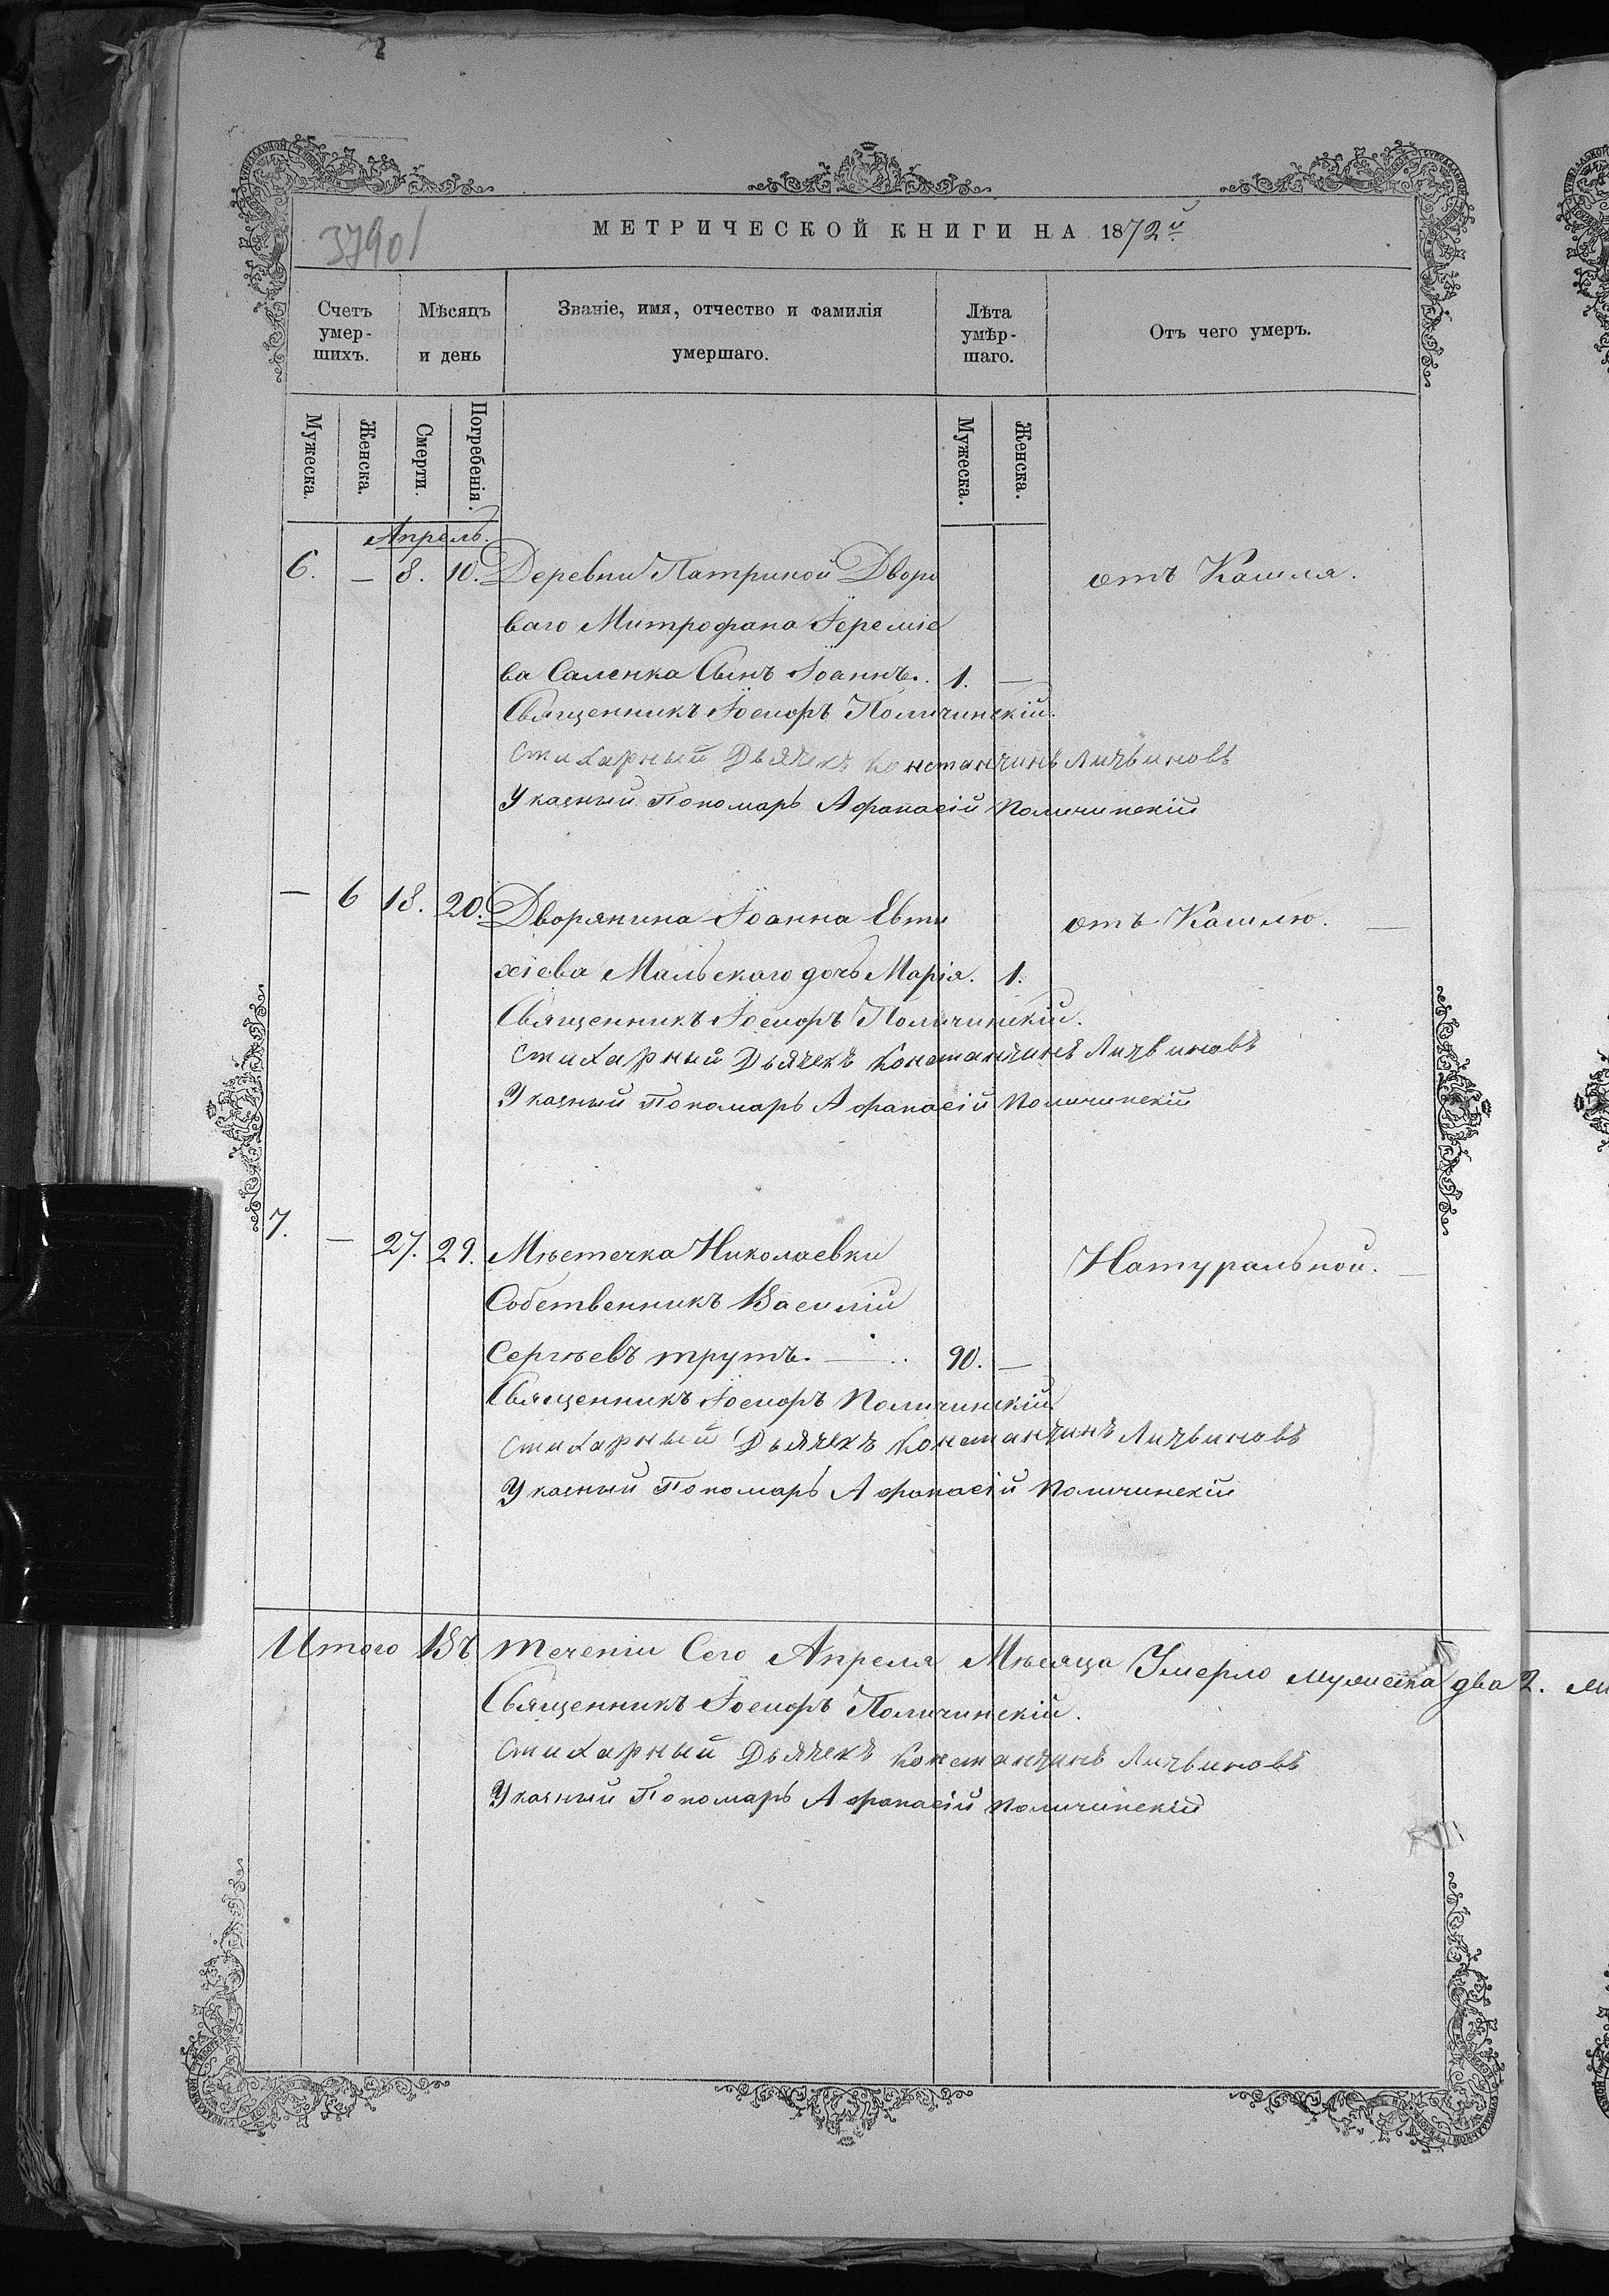 МЕТРИЧЕСКОЙ КНИГИ НА 1872й
3790
Счетъ умер-шихъ. Мѣсяцъ и день Званіе, имя, отчество и фамилія умершаго. Лѣта умѣр-шаго. Отъ чего умеръ.
Мужеска. Женска. Смерти. Погребенія. Мужеска. Женска.
Апрель.
6. — 8. 10. Деревни Патриной Дворо отъ Кашля.
ваго Митрофана Іереміе
ва Саленка Сынъ Іоаннъ. 1. —
Священникъ Іосифъ Поличинскій.
Стихарный Дьячекъ Константинъ Литвиновъ
Указный Пономарь Афанасій Поличинскій
— 6 18. 20. Дворянина Іоанна Евти отъ Кашлю. —
хіева Мальскаго дочь Марія. 1.
Священникъ Іосифъ Поличинскій.
Стихарный Дьячекъ Константинъ Литвиновъ
Указный Пономарь Афанасій Поличинскій
7. — 27. 29. Мѣстечка Николаевки Натуральной. —
Собственникъ Василій
Сергѣевъ трутъ. 90. —
Священникъ Іосифъ Поличинскій
Стихарный Дьячекъ Константинъ Литвиновъ
Указный Пономарь Афанасій Поличинскій
Итого Въ теченіи Сего Апреля Мѣсяца Умерло мужеска два 2.
Священникъ Іосифъ Поличинскій.
Стихарный Дьячекъ Константинъ Литвиновъ
Указный Пономарь Афанасій Поличинскій